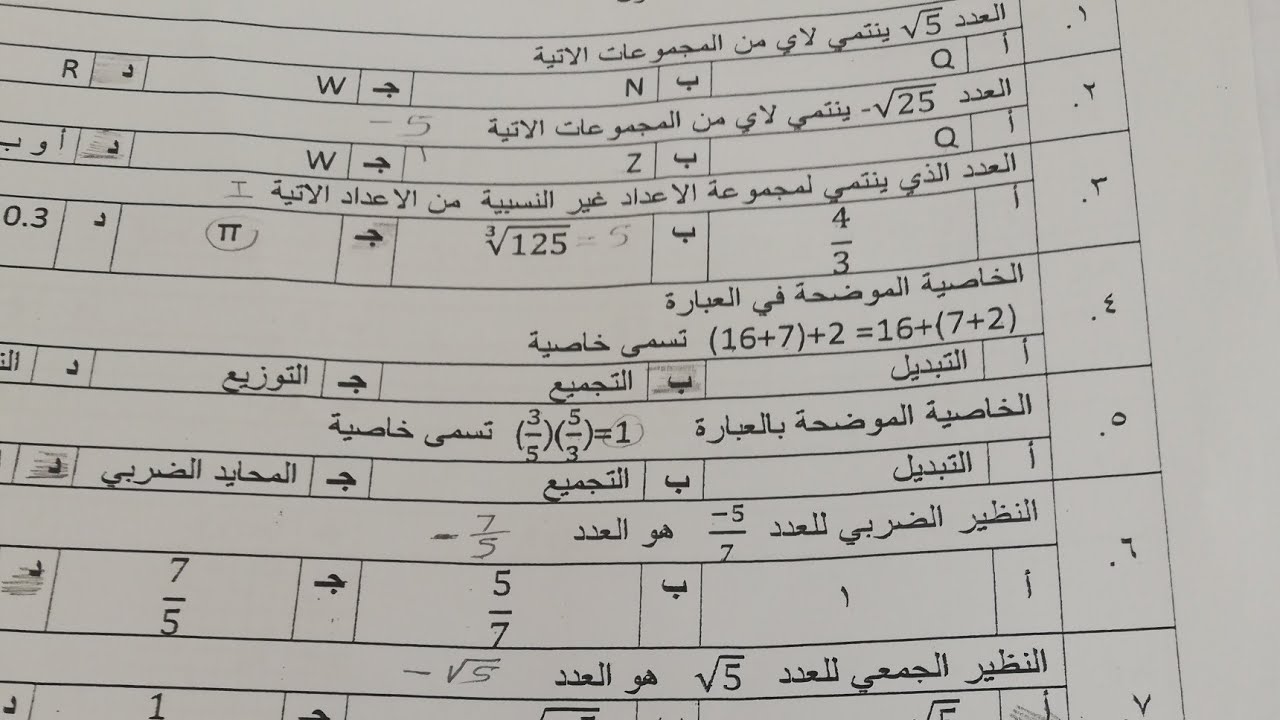 ١. العدد √5 ينتمي لاي من المجموعات الاتية
أ Q ب N جـ W د R
٢. العدد -√25 ينتمي لاي من المجموعات الاتية -5
أ Q ب Z جـ W د أ و ب
٣. العدد الذي ينتمي لمجموعة الاعداد غير النسبية من الاعداد الاتية I
أ 4/3 ب ∛125 = 5 جـ π د 0.3
٤. الخاصية الموضحة في العبارة
(16+7)+2 =16+(7+2) تسمى خاصية
أ التبديل ب التجميع جـ التوزيع د
٥. الخاصية الموضحة بالعبارة (3/5)(5/3)=1 تسمى خاصية
أ التبديل ب التجميع جـ المحايد الضربي د
٦. النظير الضربي للعدد -5/7 هو العدد -7/5
أ ١ ب 5/7 جـ 7/5 د
٧. النظير الجمعي للعدد √5 هو العدد -√5
أ √5 ب جـ 1 د